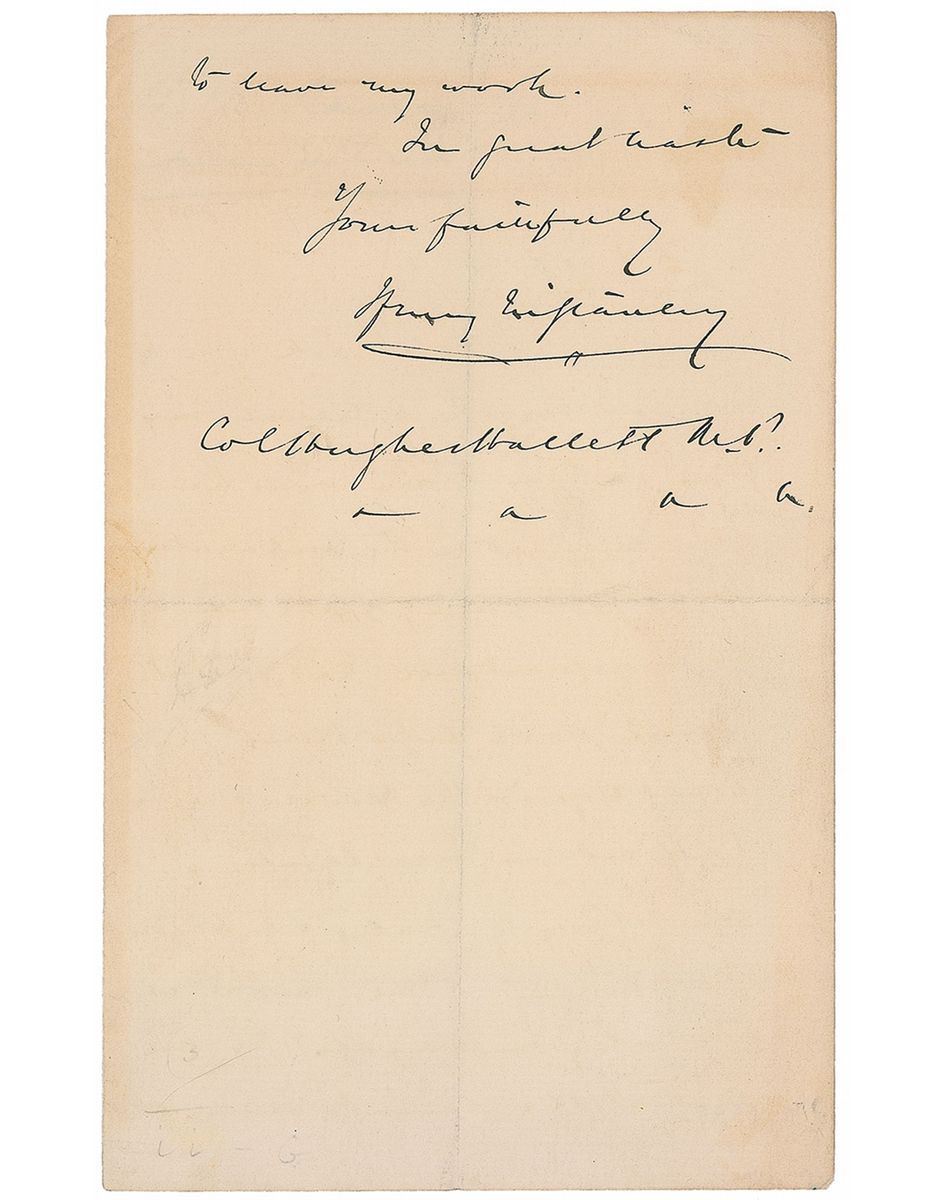 to leave my work.
In great haste
Yours faithfully
Henry M Stanley
Col Hughes Hallett M.P.